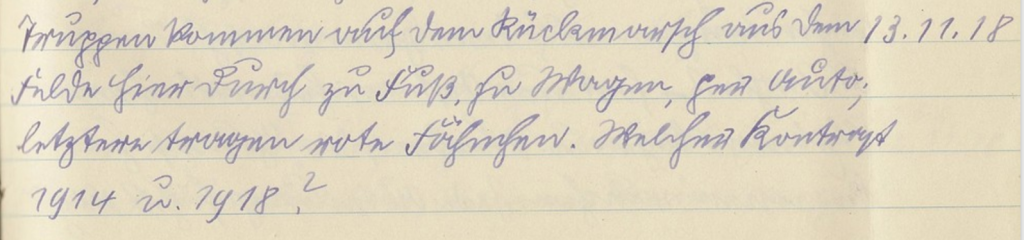 Truppen kommen auf dem Rückmarsch aus dem 13.11.18
Felde hier durch zu Fuß, zu Wagen, per Auto;
letztere tragen rote Fähnchen. Welcher Kontrast
1914 u. 1918?